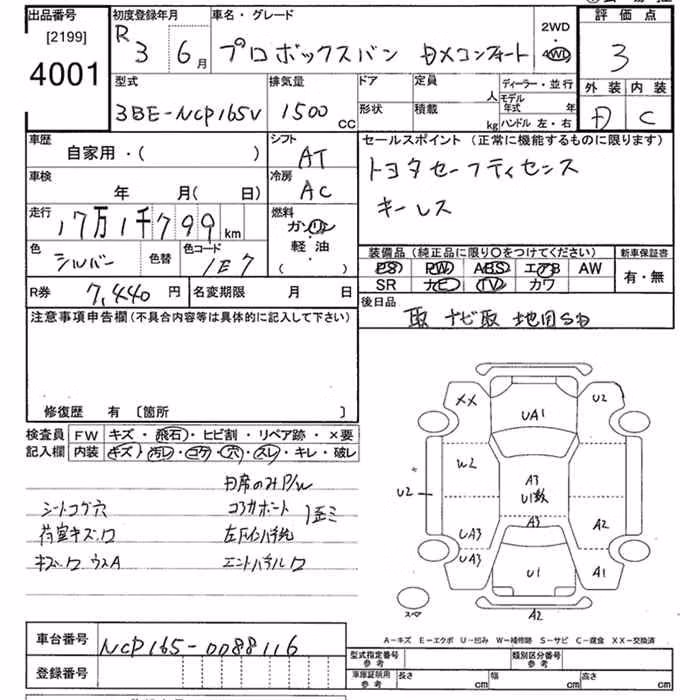 出品番号 [2199] 4001
初度登録年月 R 3 6月
車名・グレード プロボックスバン DXコンフォート
2WD・4WD
評価点 3
外装 内装 C
型式 3BE-NCP165V
排気量 1500 CC
ドア 形状
定員 人 積載 kg
ディーラー・並行
モデル年式 年
ハンドル 左・右
車歴 自家用・( )
シフト AT
セールスポイント (正常に機能するものに限ります)
トヨタセーフティセンス
キーレス
車検 年 月( 日)
冷房 AC
走行 17万1千799 km
燃料 ガソリン・軽油・( )
色 シルバー 色替 色コード 1E7
装備品 (純正品に限り〇をつけてください)
PS PW ABS エアB AW
SR ナビ TV カワ
新車保証書 有・無
R券 7,440 円 名変期限 月 日
後日品 取 ナビ取 地図SD
注意事項申告欄 (不具合内容等は具体的に記入して下さい)
修復歴 有 〔箇所 〕
検査員記入欄 FW キズ・飛石・ヒビ割・リペア跡・×要
内装 キズ・汚レ・コゲ・穴・スレ・キレ・破レ
D席のみP/W
シートコゲ穴
荷室キズワ
キズワ ウスA
コアサポート
XX U2
UA1
W2
A3
U1数
U2
UA3 A3 A2
UA3 U1 A1
スペア A2
A-キズ E-エクボ U-凹み W-補修跡 S-サビ C-腐食 XX-交換済
車台番号 NCP165-0088116
型式指定番号 参考 類別区分番号 参考
登録番号
車庫証明用 参考 長さ cm 幅 cm 高さ cm